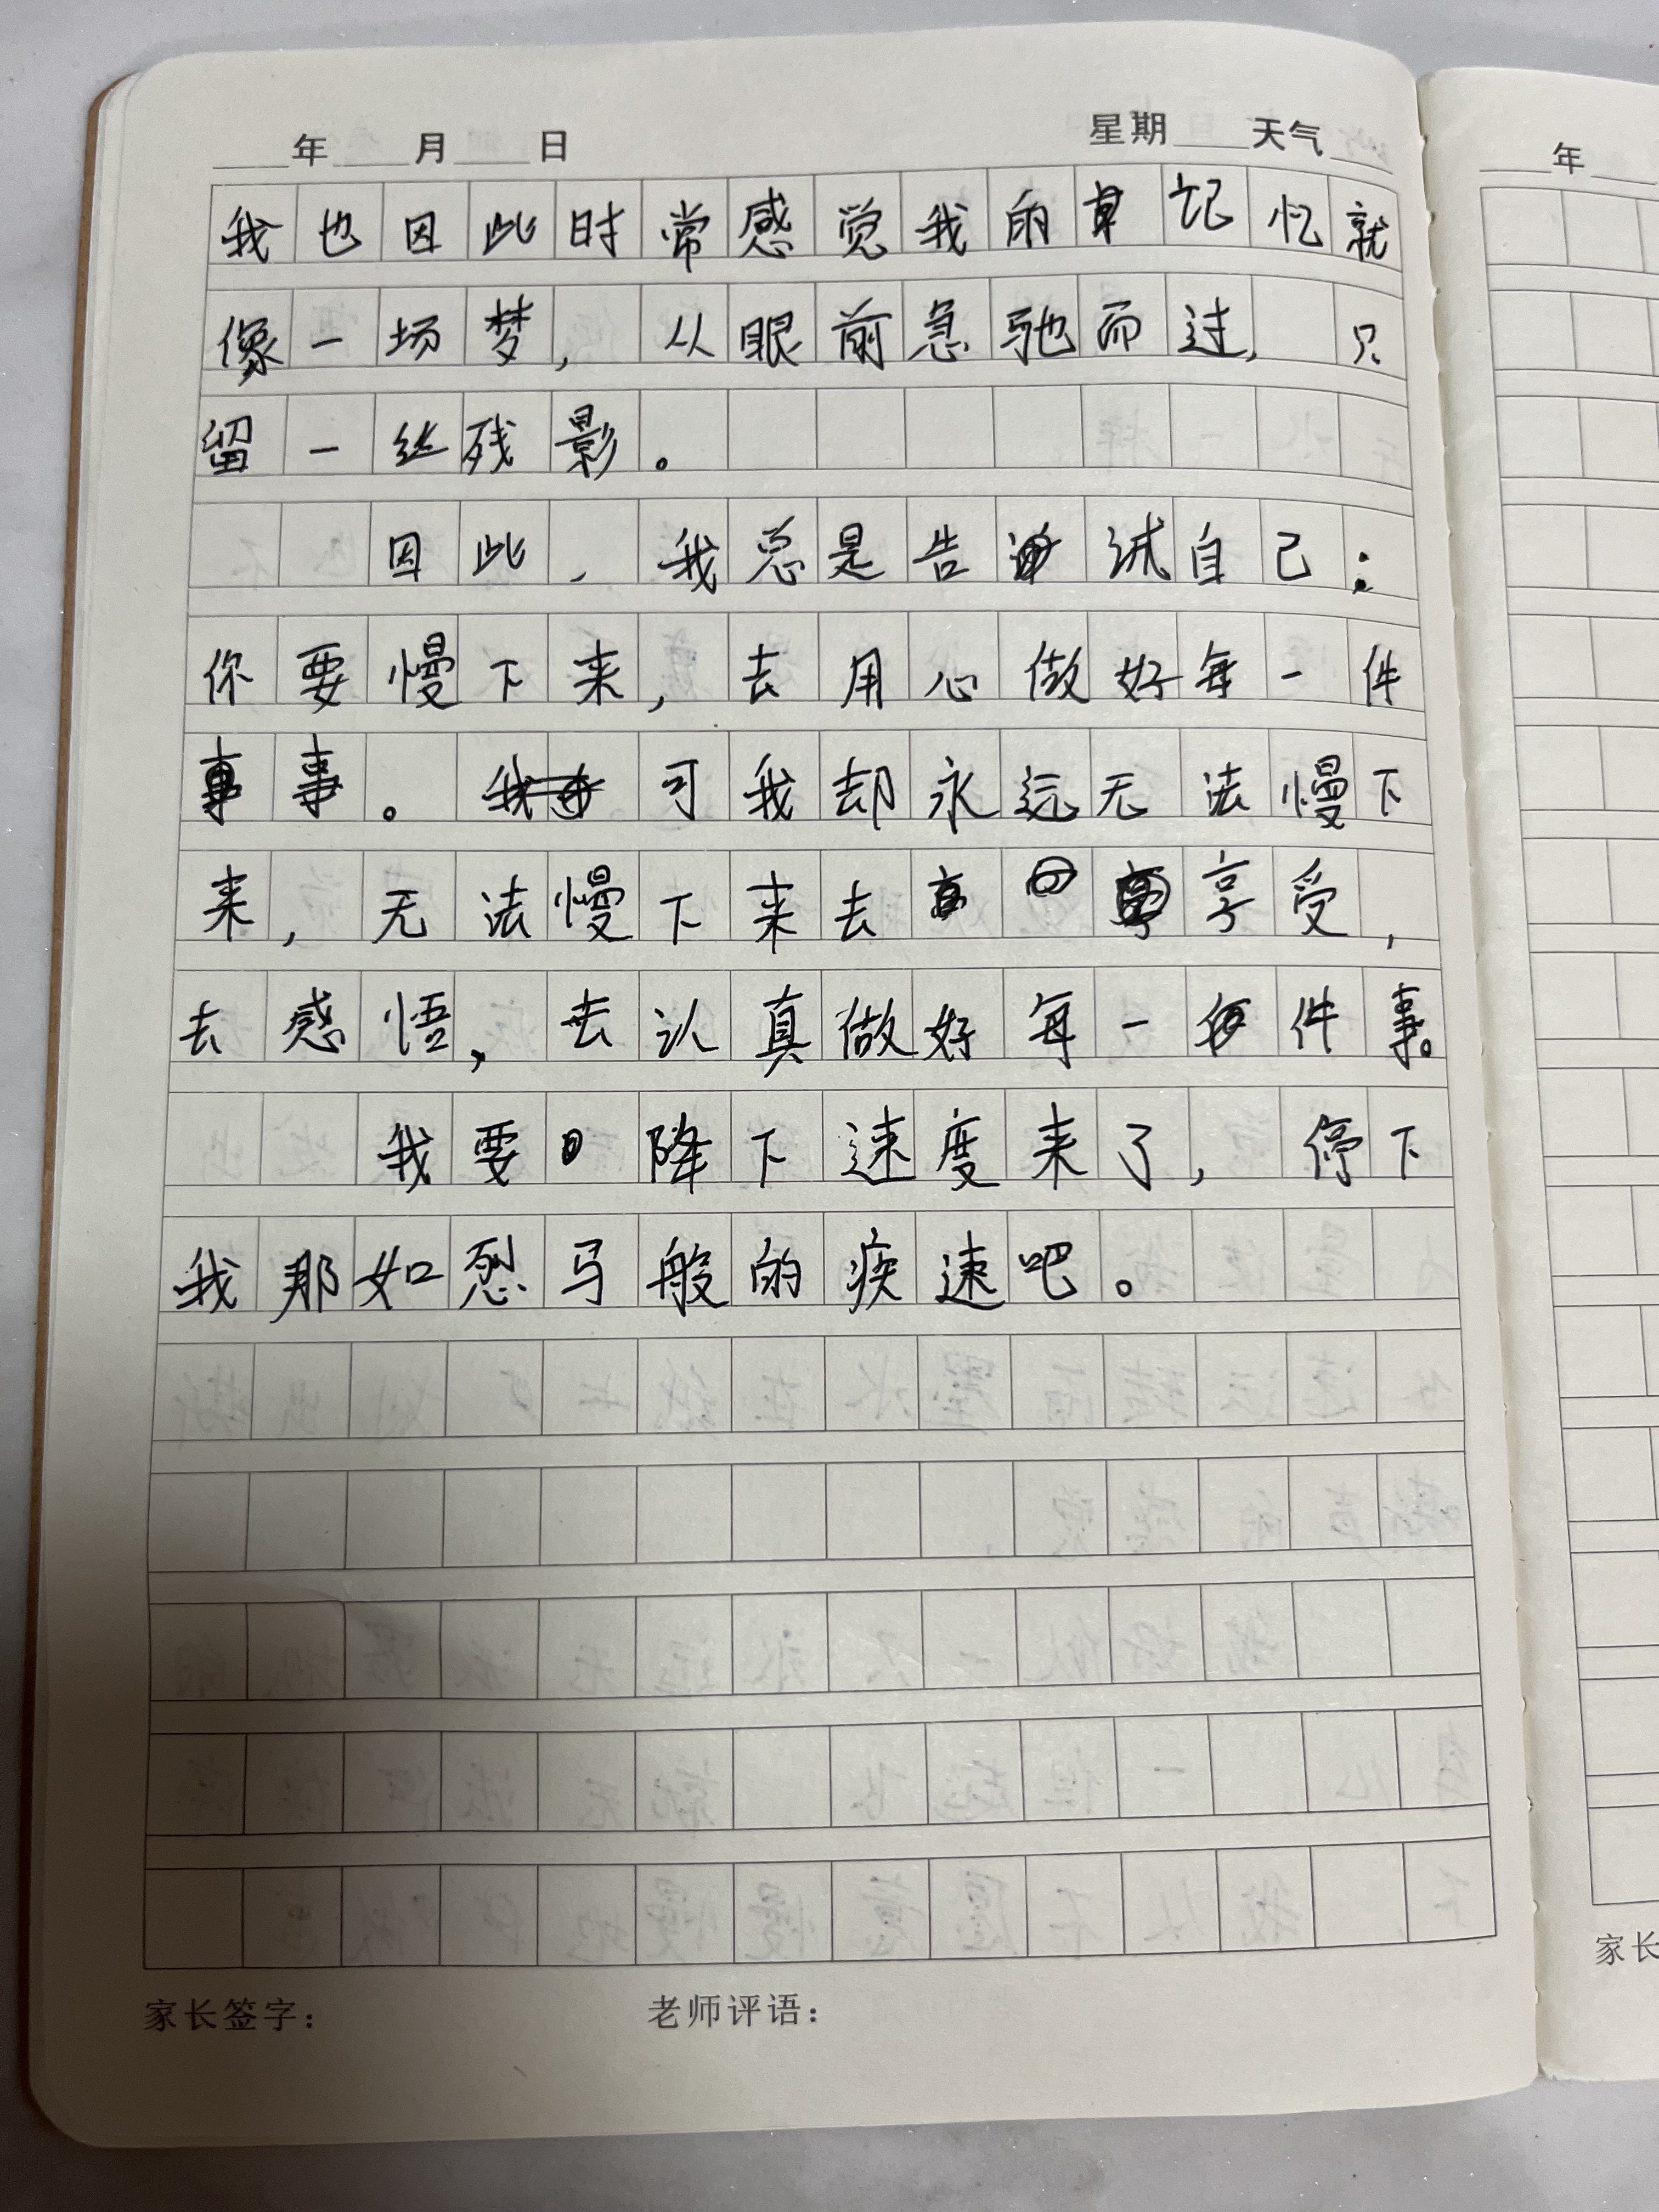 年 月 日 星期 天气
我也因此时常感觉我的记忆就
像一场梦，从眼前急驰而过，只
留一丝残影。
因此，我总是告诫自己：
你要慢下来，去用心做好每一件
事。可我却永远无法慢下
来，无法慢下来去享受，
去感悟，去认真做好每一件事。
我要降下速度来了，停下
我那如烈马般的疾速吧。
家长签字： 老师评语：
年
家长